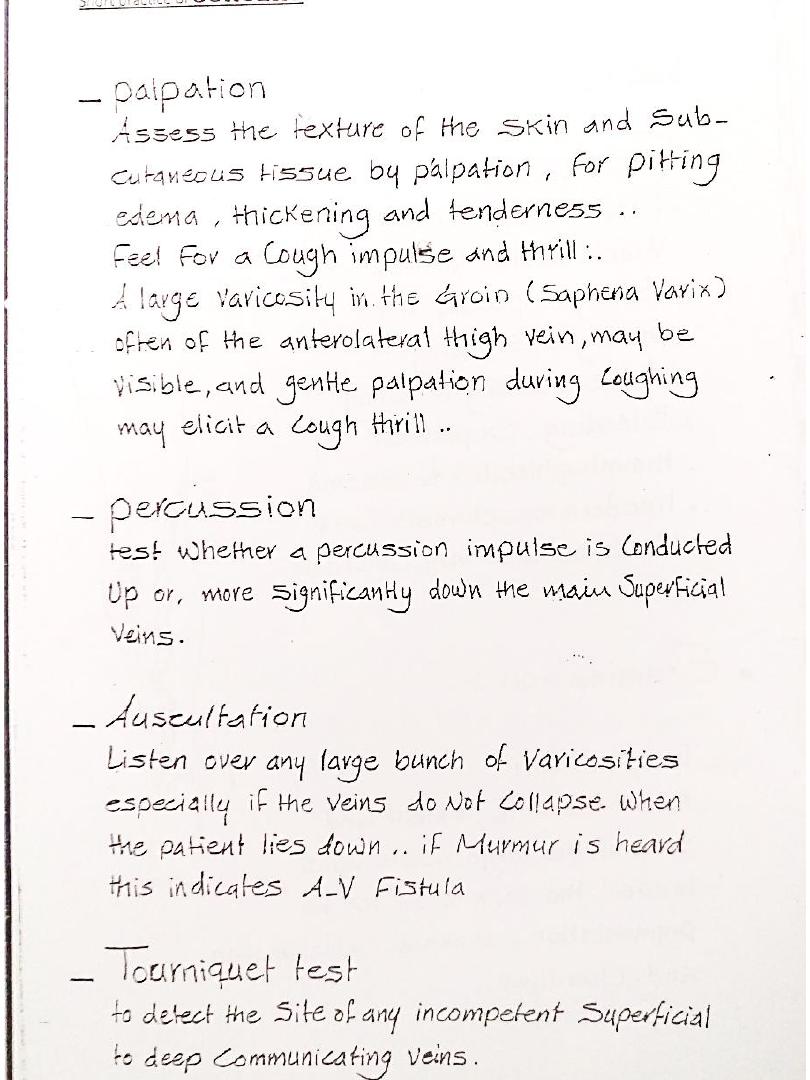 Short practice of
– palpation
Assess the texture of the skin and Sub-
cutaneous tissue by palpation , for pitting
edema , thickening and tenderness ..
Feel For a Cough impulse and thrill :.
A large Varicosity in the Groin (Saphena Varix)
often of the anterolateral thigh vein , may be
Visible , and gentle palpation during Coughing
may elicit a Cough thrill ..
– percussion
test whether a percussion impulse is Conducted
Up or, more significantly down the main Superficial
Veins .
– Auscultation
Listen over any large bunch of Varicosities
especially if the Veins do Not Collapse When
the patient lies down .. if Murmur is heard
this indicates A_V Fistula
– Tourniquet test
to detect the Site of any incompetent Superficial
to deep Communicating Veins .